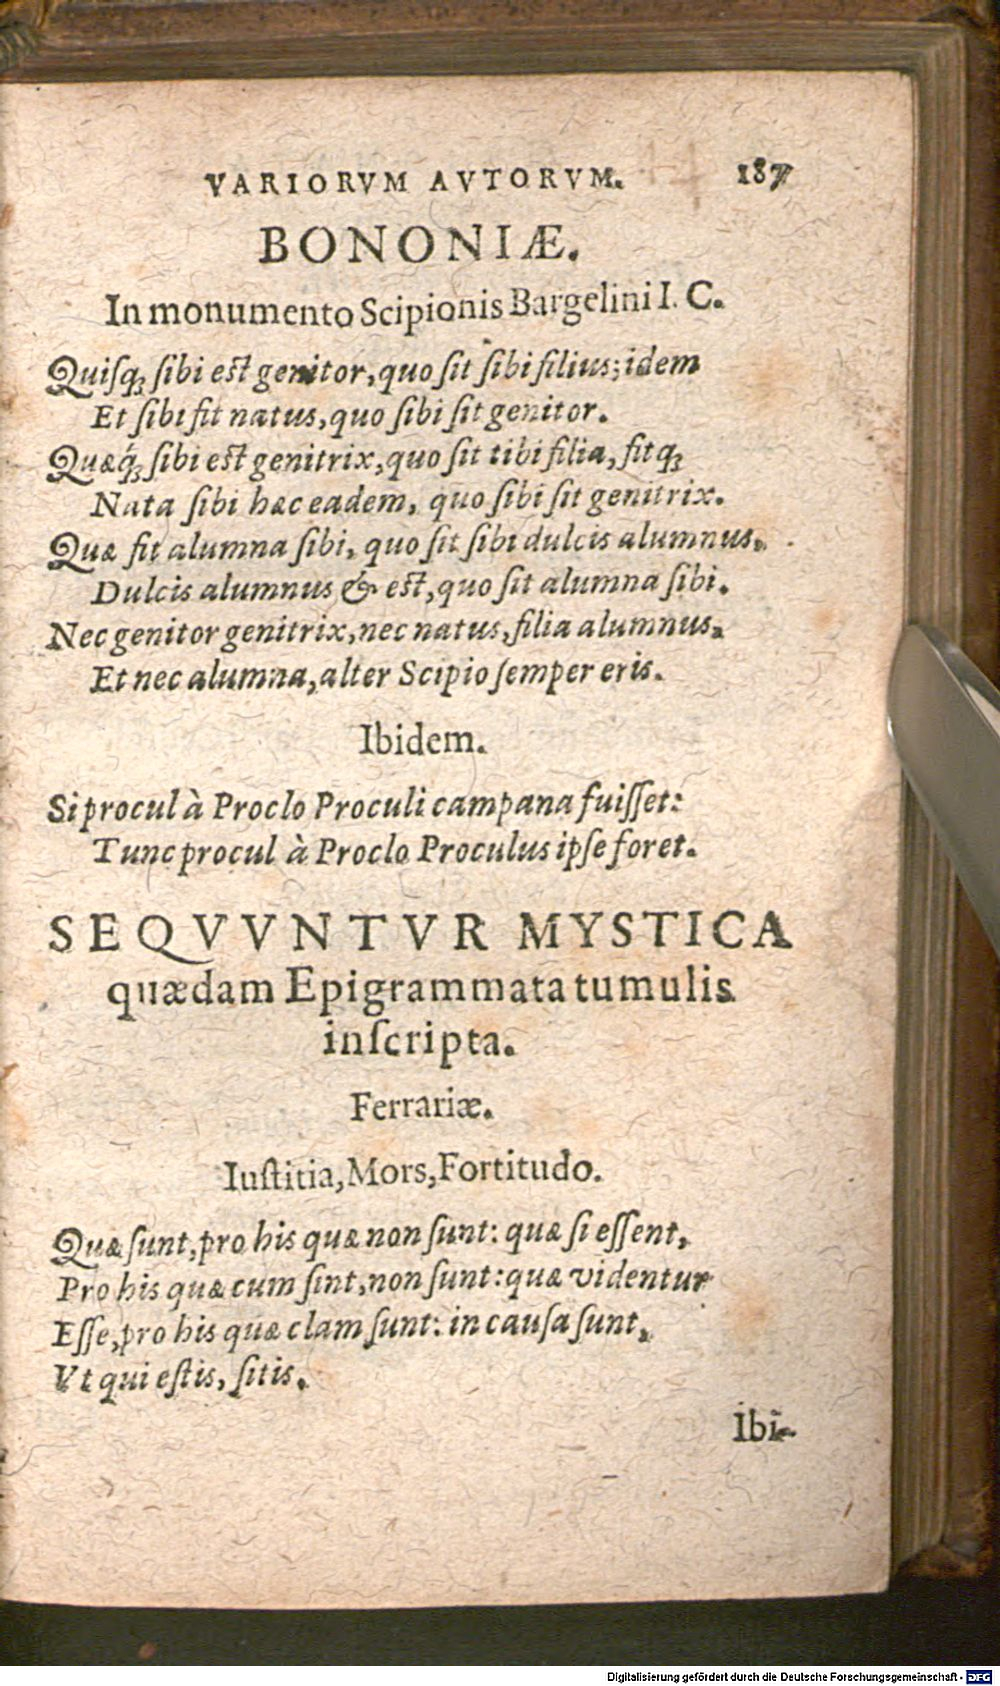 VARIORVM AVTORVM. 187
BONONIÆ.
In monumento Scipionis Bargelini I. C.
Quiſq́ꝫ ſibi eſt genitor, quo ſit ſibi filius; idem
Et ſibi fit natus, quo ſibi ſit genitor.
Quæq́ꝫ ſibi eſt genitrix, quo ſit tibi filia, fitqꝫ
Nata ſibi hæc eadem, quo ſibi ſit genitrix.
Quæ fit alumna ſibi, quo ſit ſibi dulcis alumnus,
Dulcis alumnus & eſt, quo ſit alumna ſibi.
Nec genitor genitrix, nec natus, filia alumnus,
Et nec alumna, alter Scipio ſemper eris.
Ibidem.
Si procul à Proclo Proculi campana fuiſſet:
Tunc procul à Proclo Proculus ipſe foret.
SEQVVNTVR MYSTICA
quædam Epigrammata tumulis
inſcripta.
Ferrariæ.
Iuſtitia, Mors, Fortitudo.
Quæ ſunt, pro his quæ non ſunt: quæ ſi eſſent,
Pro his quæ cum ſint, non ſunt: quæ videntur
Eſſe, pro his quæ clam ſunt: in cauſa ſunt,
Vt qui eſtis, ſitis.
Ibi-
Digitalisierung gefördert durch die Deutsche Forschungsgemeinschaft - DFG